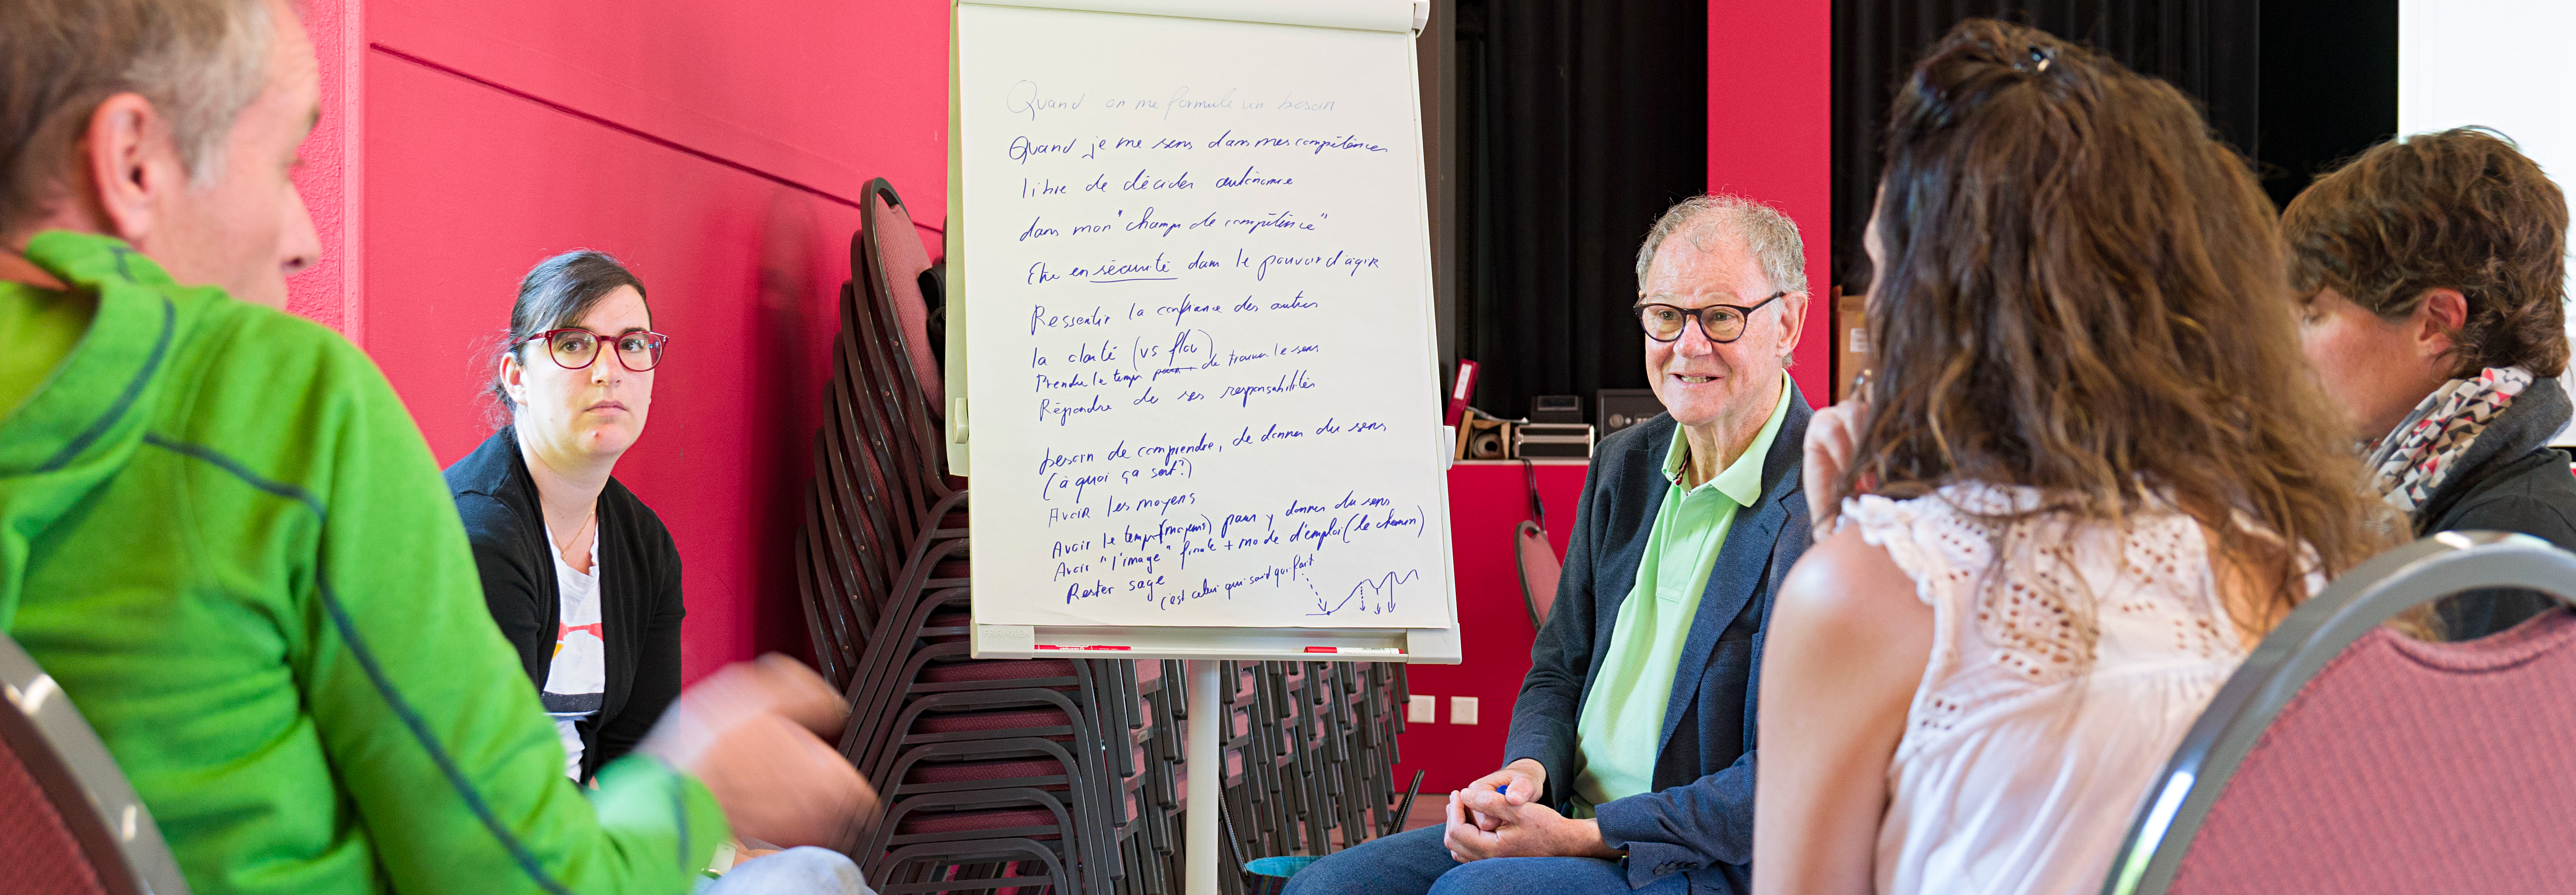 Quand on me formule un besoin
Quand je me sens dans mes compétences
libre de décider autonomie
dans mon "champs de compétence"
Etre en sécurité dans le pouvoir d'agir
Ressentir la confiance des autres
la clarté (vs flou)
Prendre le temps pour de trouver le sens
Répondre de ses responsabilités
besoin de comprendre, de donner du sens
(à quoi ça sert?)
Avoir les moyens
Avoir le temps (moyens) pour y donner du sens
Avoir "l'image" finale + mode d'emploi (le chemin)
Rester sage
c'est celui qui sait qui fait